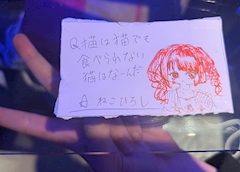 Q猫は猫でも
食べられない
猫はなーんだ
A ねこひろし